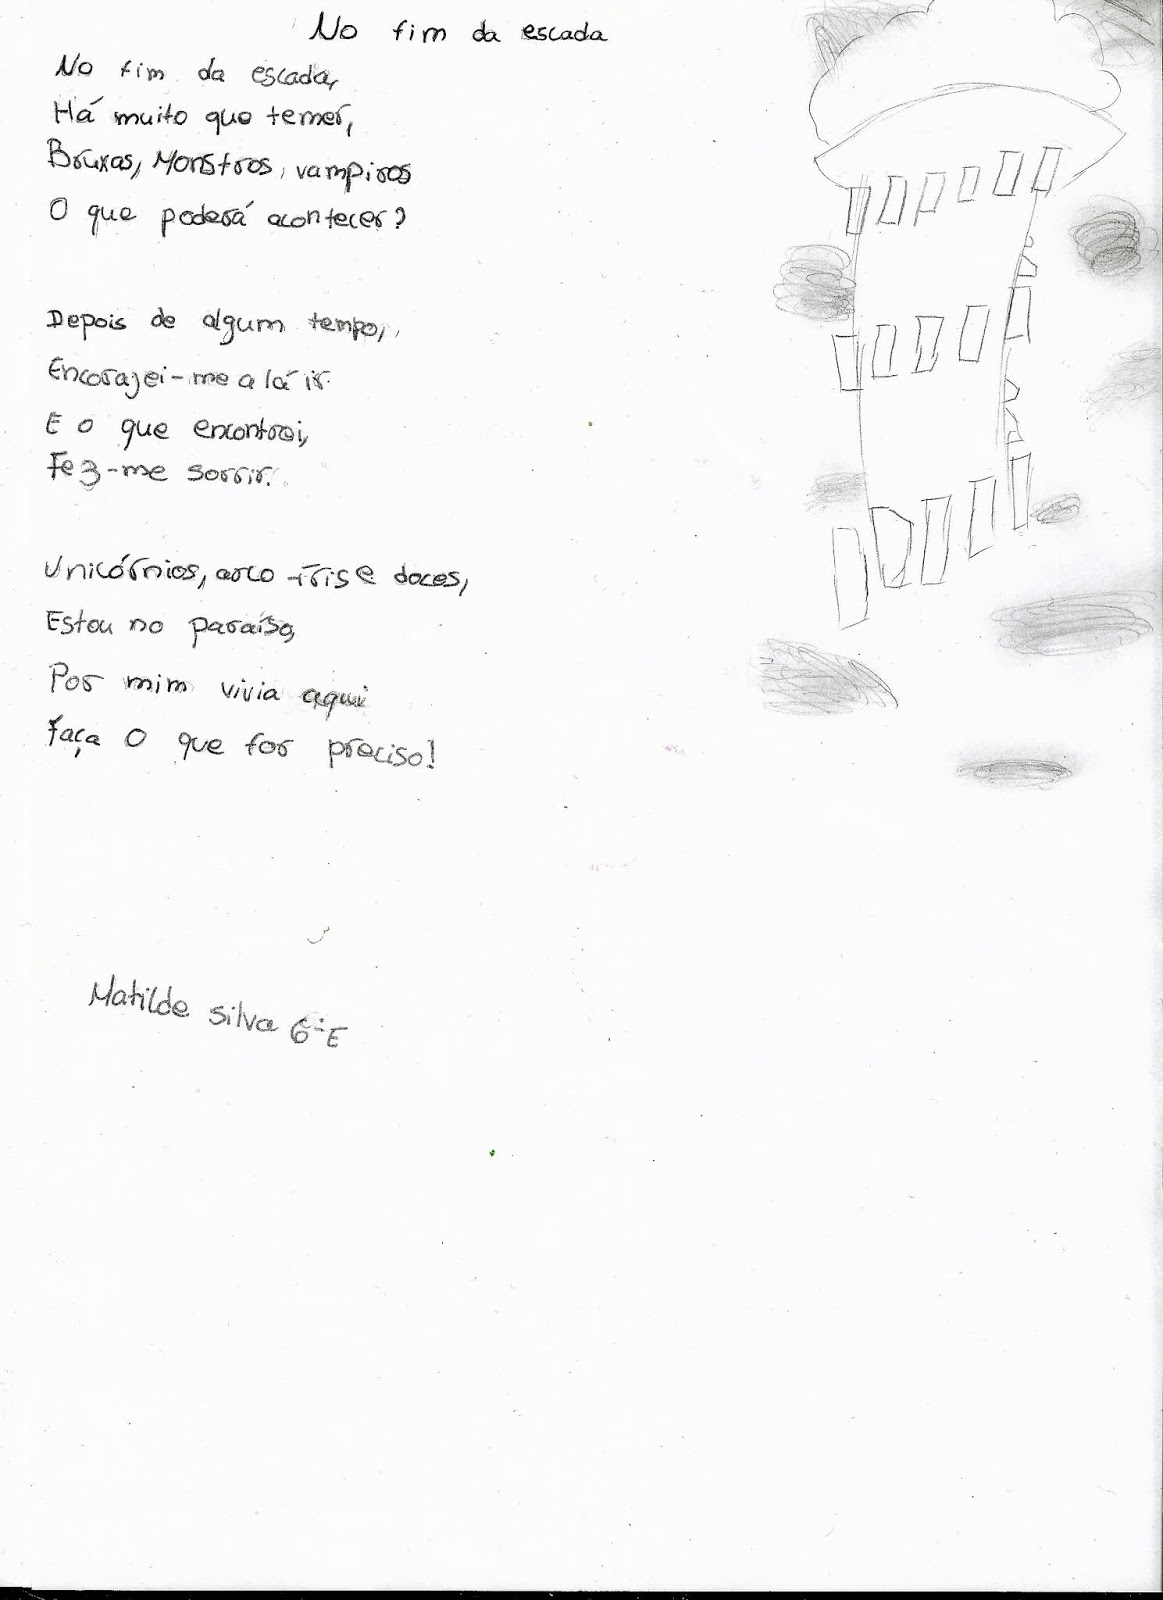 No fim da escada
No fim da escada,
Há muito que temer,
Bruxas, Monstros, vampiros
O que poderá acontecer?
Depois de algum tempo,
Encorajei-me a lá ir.
E o que encontrei,
Fez-me sorrir.
Unicórnios, arco-íris e doces,
Estou no paraíso,
Por mim vivia aqui
Faça o que for preciso!
Matilde Silva 6ºE